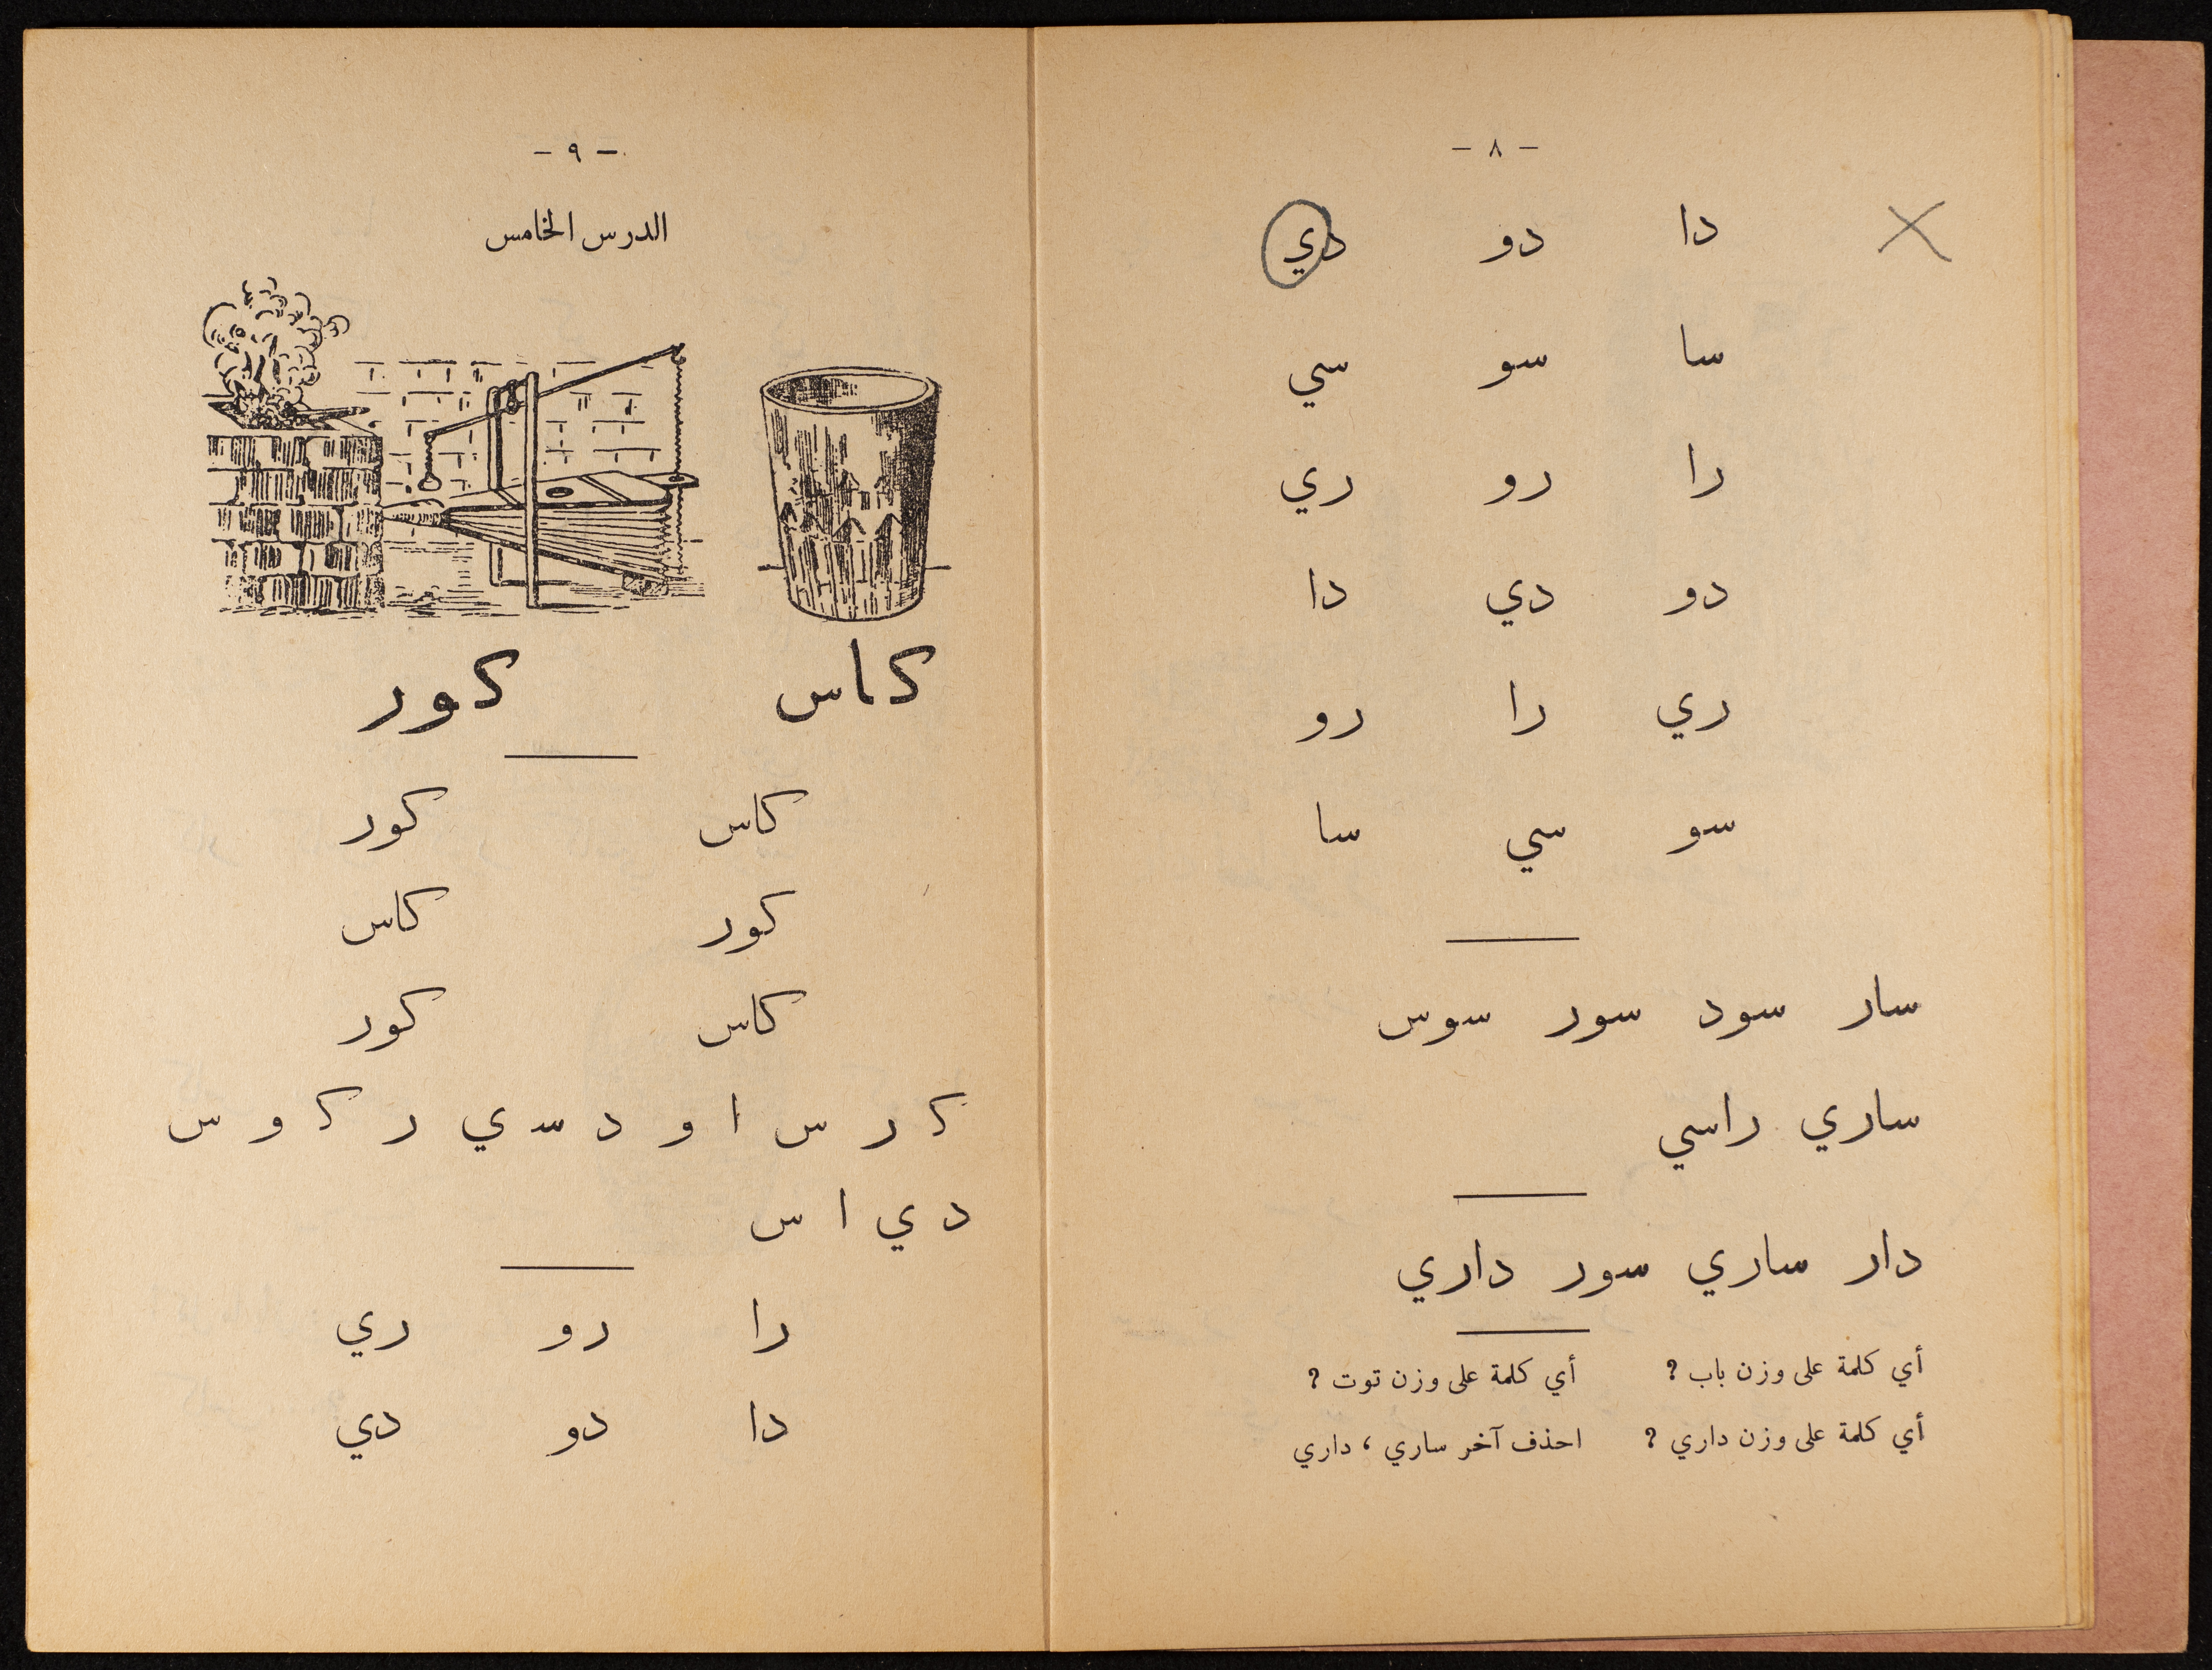 - ٨ -
دا دو دي
سا سو سي
را رو ري
دو دي دا
ري را رو
سو سي سا
سار سود سور سوس
ساري راسي
دار ساري سور داري
أي كلمة على وزن باب ? أي كلمة على وزن توت ?
أي كلمة على وزن داري ? احذف آخر ساري ، داري
- ٩ -
الدرس الخامس
كاس كور
كاس كور
كور كاس
كاس كور
كـ ر س ا و د سـ ي ر كـ و س
د ي ا س
را رو ري
دا دو دي